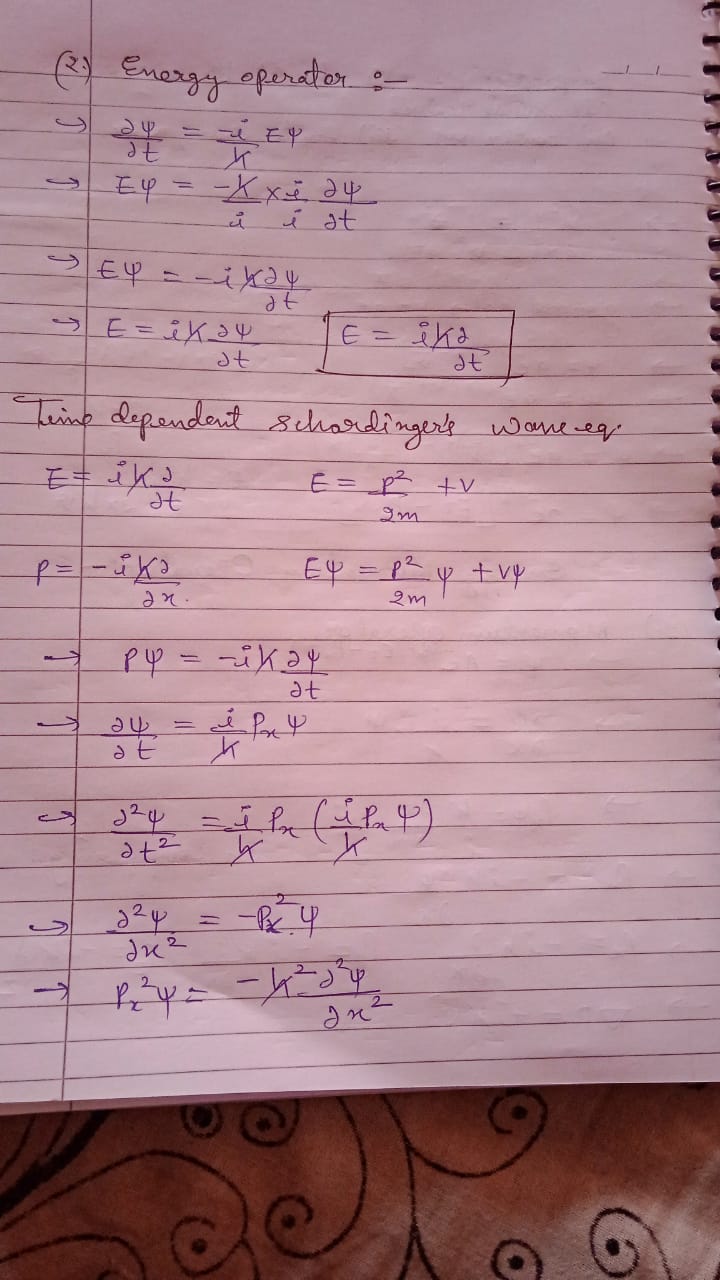 (2.) Energy operator :-
→ ∂ψ/∂t = -i/ħ Eψ
→ Eψ = -ħ/i × i/i ∂ψ/∂t
→ Eψ = -iħ∂ψ/∂t
→ E = iħ∂ψ/∂t E = iħ∂/∂t
Time dependent schardinger's wave eq.
E = iħ∂/∂t E = p²/2m + v
p = -iħ∂/∂x. Eψ = p²/2m ψ + vψ
→ pψ = -iħ∂ψ/∂t
→ ∂ψ/∂t = i/ħ Pxψ
→ ∂²ψ/∂t² = i/ħ Px (i/ħ Pxψ)
→ ∂²ψ/∂x² = -Px².ψ
→ Px²ψ = -ħ²∂²ψ/∂x²